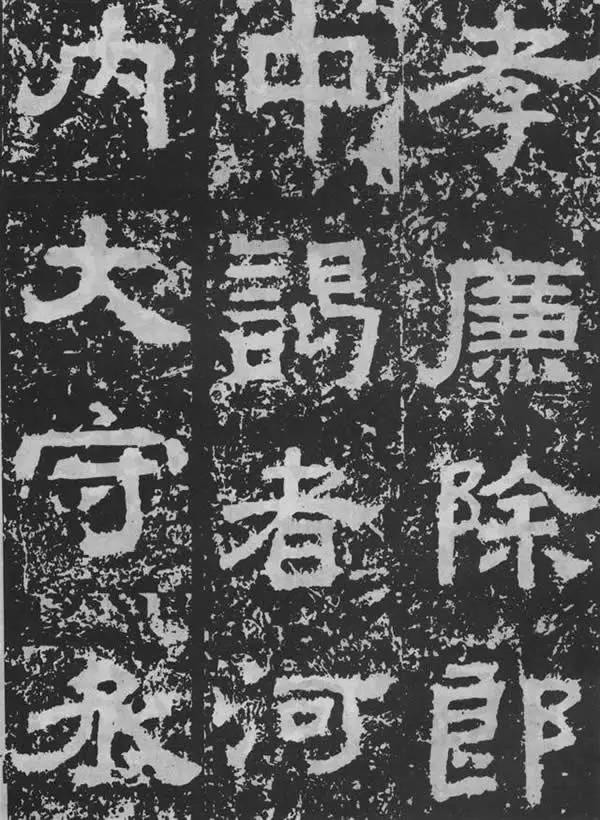 孝廉除郎
中謁者河
內大守丞